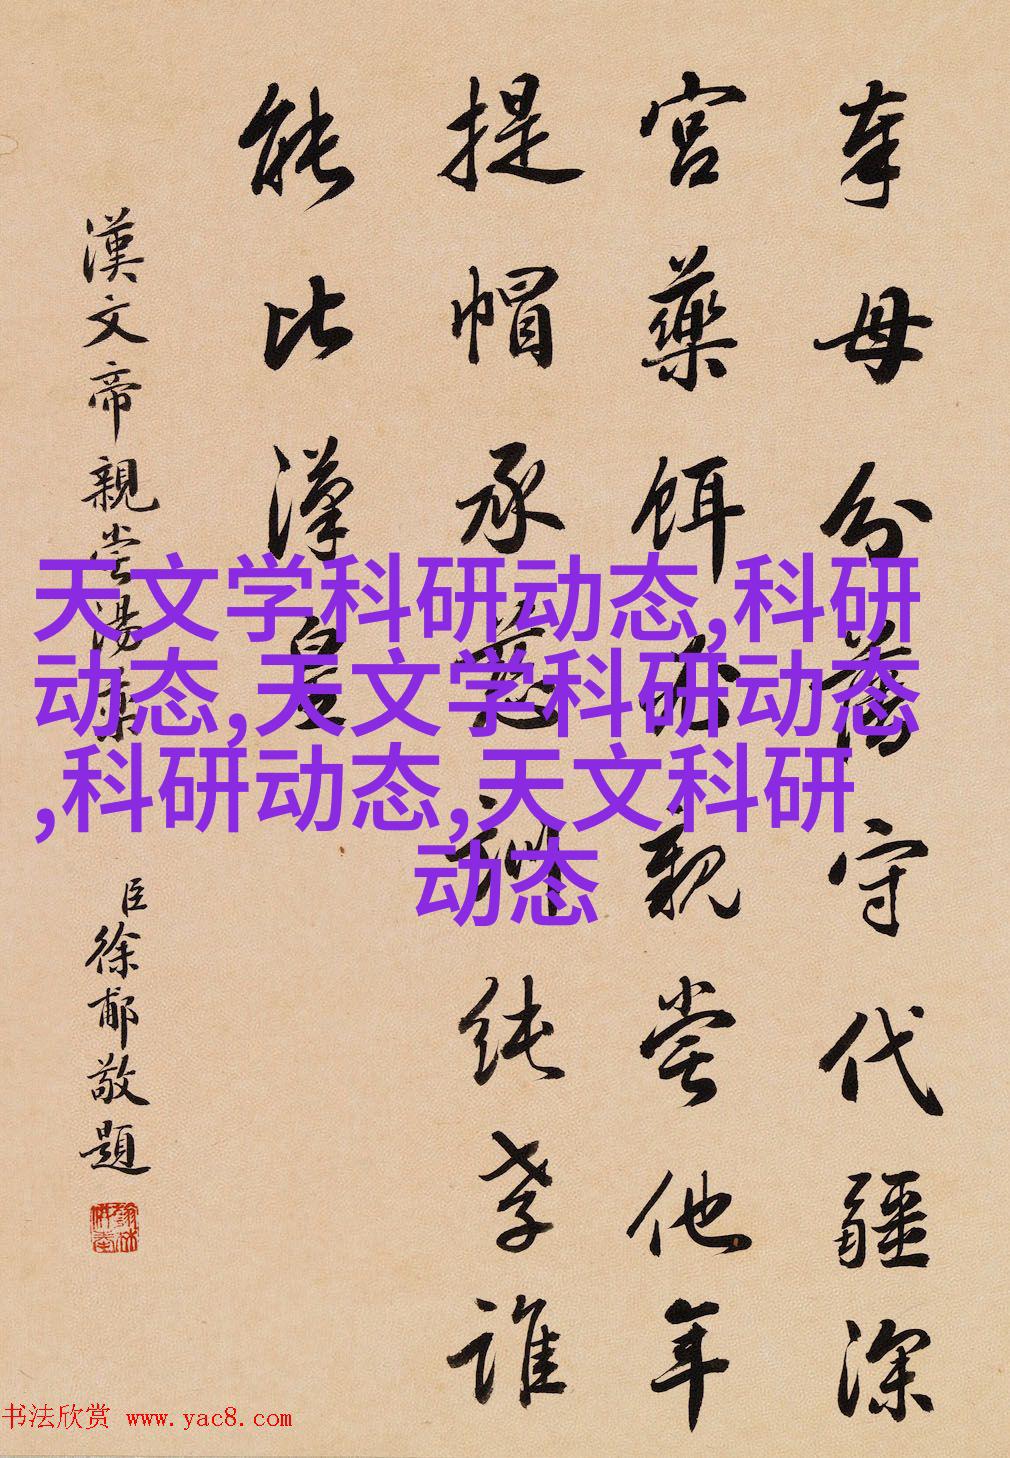 奉母分藩守代疆深
宫藥餌必親嘗他年
提帽承慈訓純孝誰
能比漢皇
漢文帝親嘗湯藥
臣徐郙敬題
天文学科研动态,科研
动态,天文学科研动态
,科研动态,天文科研
动态
书法欣赏 www.yac8.com